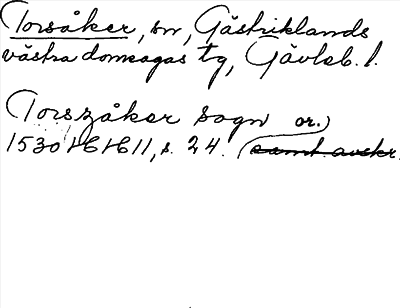 Torsåker, sn, Gästriklands
västra domsagas tg, Gävleb. l.
Torszåker sogn or.)
1530 16/6 11, s. 24. (samt avskr.